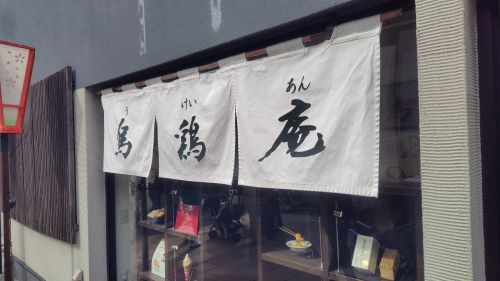 う けい あん
烏 鶏 庵